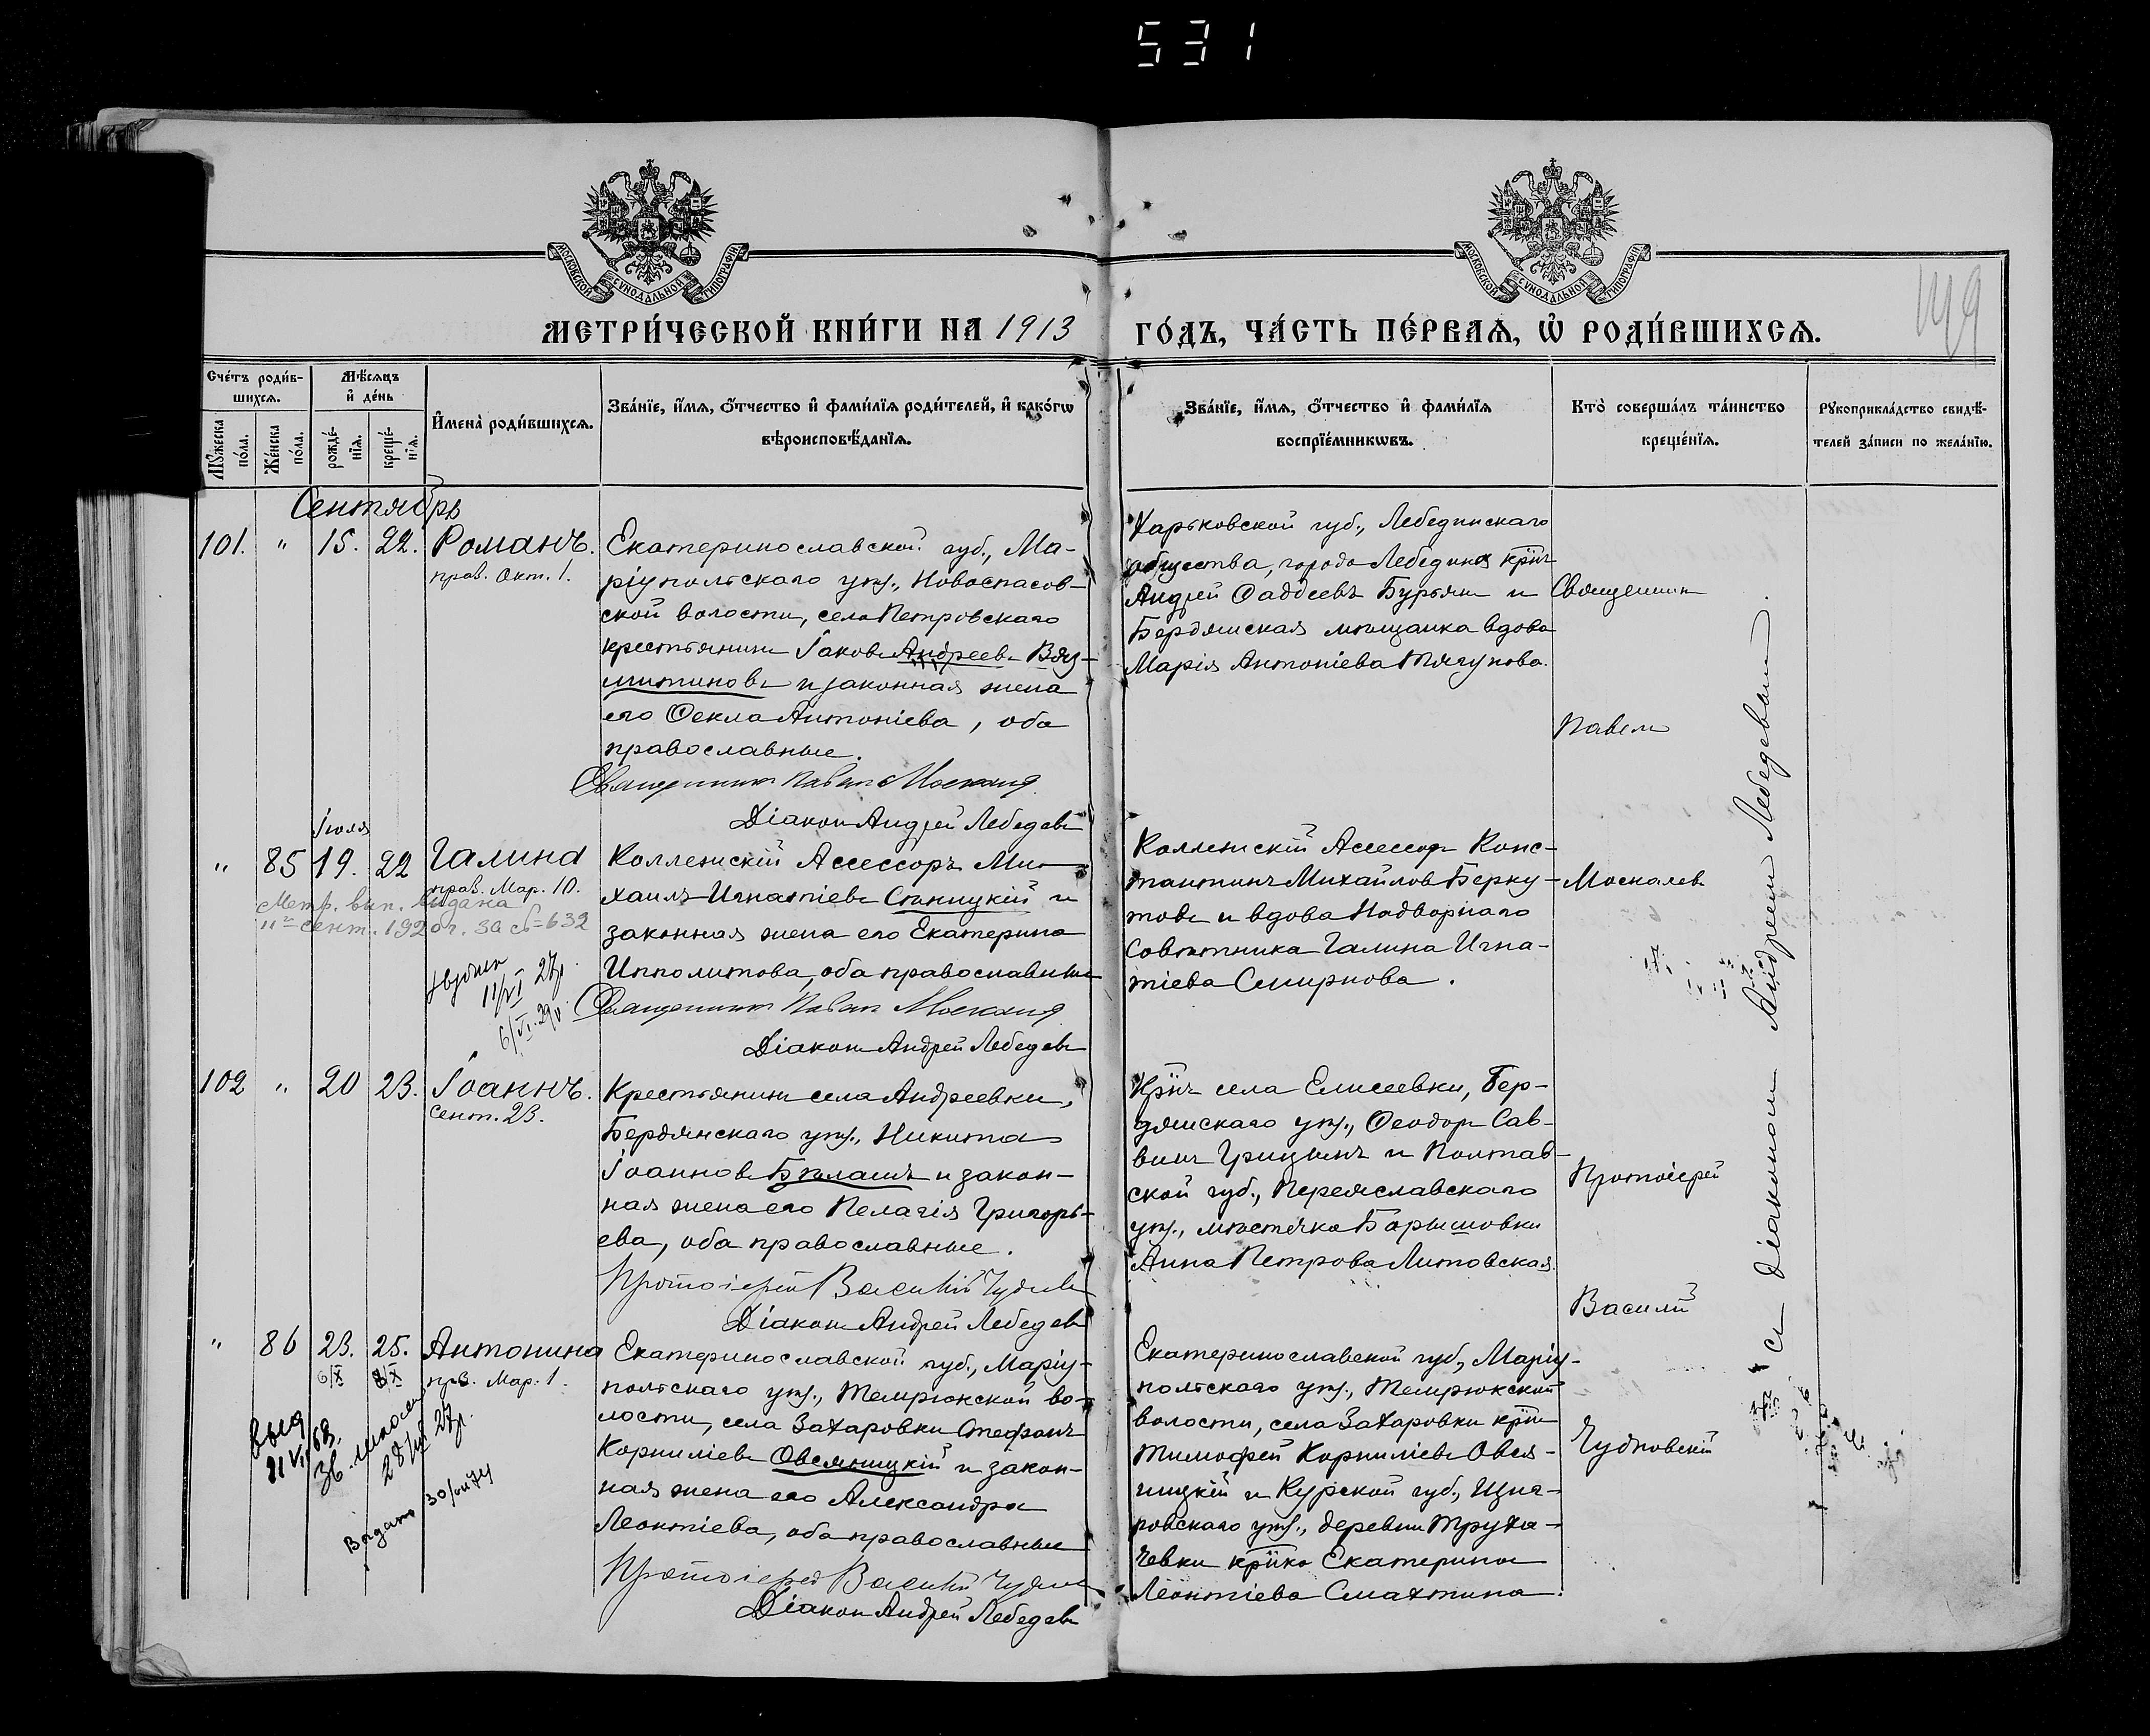 531
МОСКОВСКОЙ СѴНОДАЛЬНОЙ ТИПОГРАФІИ
МОСКОВСКОЙ СѴНОДАЛЬНОЙ ТИПОГРАФІИ
МЕТРИ́ЧЕСКОЙ КНИ́ГИ НА 1913
ГО́ДЪ, ЧА́СТЬ ПЕ́РВАЯ, Ѡ҆ РОДИ́ВШИХСЯ.
149
Сче́тъ роди́в-
шихся.
Мѣ́сяцъ
и҆ де́нь
Мꙋ́жеска
по́ла.
Же́нска
по́ла.
рожде́-
нїя.
креще́-
нїя.
И҆мена̀ роди́вшихся.
Зва́нїе, и҆́мя, ѻ҆́тчество и҆ фами́лїя роди́телей, и҆ како́гѡ
вѣроисповѣ́данїя.
Зва́нїе, и҆́мя, ѻ҆́тчество и҆ фами́лїя
воспрїе́мникѡвъ.
Кто̀ соверша́лъ та́инство
креще́нїя.
Рꙋкоприкла́дство свидѣ́-
телей за́писи по жела́нїю.
Сентябрь
101. " 15. 22. Романъ.
прав. Окт. 1.
Екатеринославской губ., Ма-
ріупольскаго уѣз., Новоспасов-
ской волости, села Петровскаго
крестьянинъ Іаковъ Андреевъ Вяз-
митиновъ и законная жена
его Ѳекла Антоніева, оба
православные.
Священникъ Павелъ Москалев
Діаконъ Андрей Лебедевъ
Харьковской губ., Лебединскаго
общества, города Лебедина кр̃нъ
Андрей Ѳаддеевъ Бурьян и
Бердянская мѣщанка вдова
Марія Антоніева Тягунова.
Священник
Павел
Москалев
Протоіерей
Василій
Чудновскій
съ Діакономъ Андреемъ Лебедевым.
Іюля
" 85 19. 22 Галина
прав. Мар. 10.
Метр. вып. выдана
11го сент. 1920 г. за № 632
11/VI 27г.
6/VI.29г.
Коллежскій Ассессоръ Ми-
хаилъ Игнатіевъ Спиницкій и
законная жена его Екатерина
Ипполитова, оба православные
Священникъ Павел Москалев
Діаконъ Андрей Лебедевъ
Коллежскій Ассессоръ Конс-
тантинъ Михайловъ Берку-
товъ и вдова Надворнаго
Совѣтника Галина Игна-
тіева Смирнова.
102 " 20 23. Іоаннъ.
Сент. 23.
Крестьянинъ села Андреевки,
Бердянскаго уѣз., Никита
Іоанновъ Бѣлашъ и закон-
ная жена его Пелагія Григорь-
ева, оба православные.
Протоіерей Василій Чуднов
Діаконъ Андрей Лебедевъ
Кр̃нъ села Елисеевки, Бер-
дянскаго уѣз., Ѳеодоръ Сав-
винъ Грицынъ и Полтав-
ской губ., Переяславскаго
уѣз., мѣстечка Барышовки
Анна Петрова Литовская.
" 86 23. 25. Антонина
6/X 8/X прв. Мар. 1.
Выд
21 VII 63.
28/VII 27г.
Выдано 30/VII 74
Екатеринославской губ., Маріу-
польскаго уѣз., Темрюкской во-
лости, села Захаровки Стефанъ
Корниліевъ Овсяницкій и закон-
ная жена его Александра
Леонтіева, оба православные
Протоіерей Василій Чуднов
Діаконъ Андрей Лебедевъ
Екатеринославской губ., Маріу-
польскаго уѣз., Темрюкской
волости, села Захаровки кр̃нъ
Тимофей Корниліевъ Овся-
ницкій и Курской губ., Щиг-
ровскаго уѣз., деревни Труха-
чевки кр̃нка Екатерина
Леонтіева Смахтина.